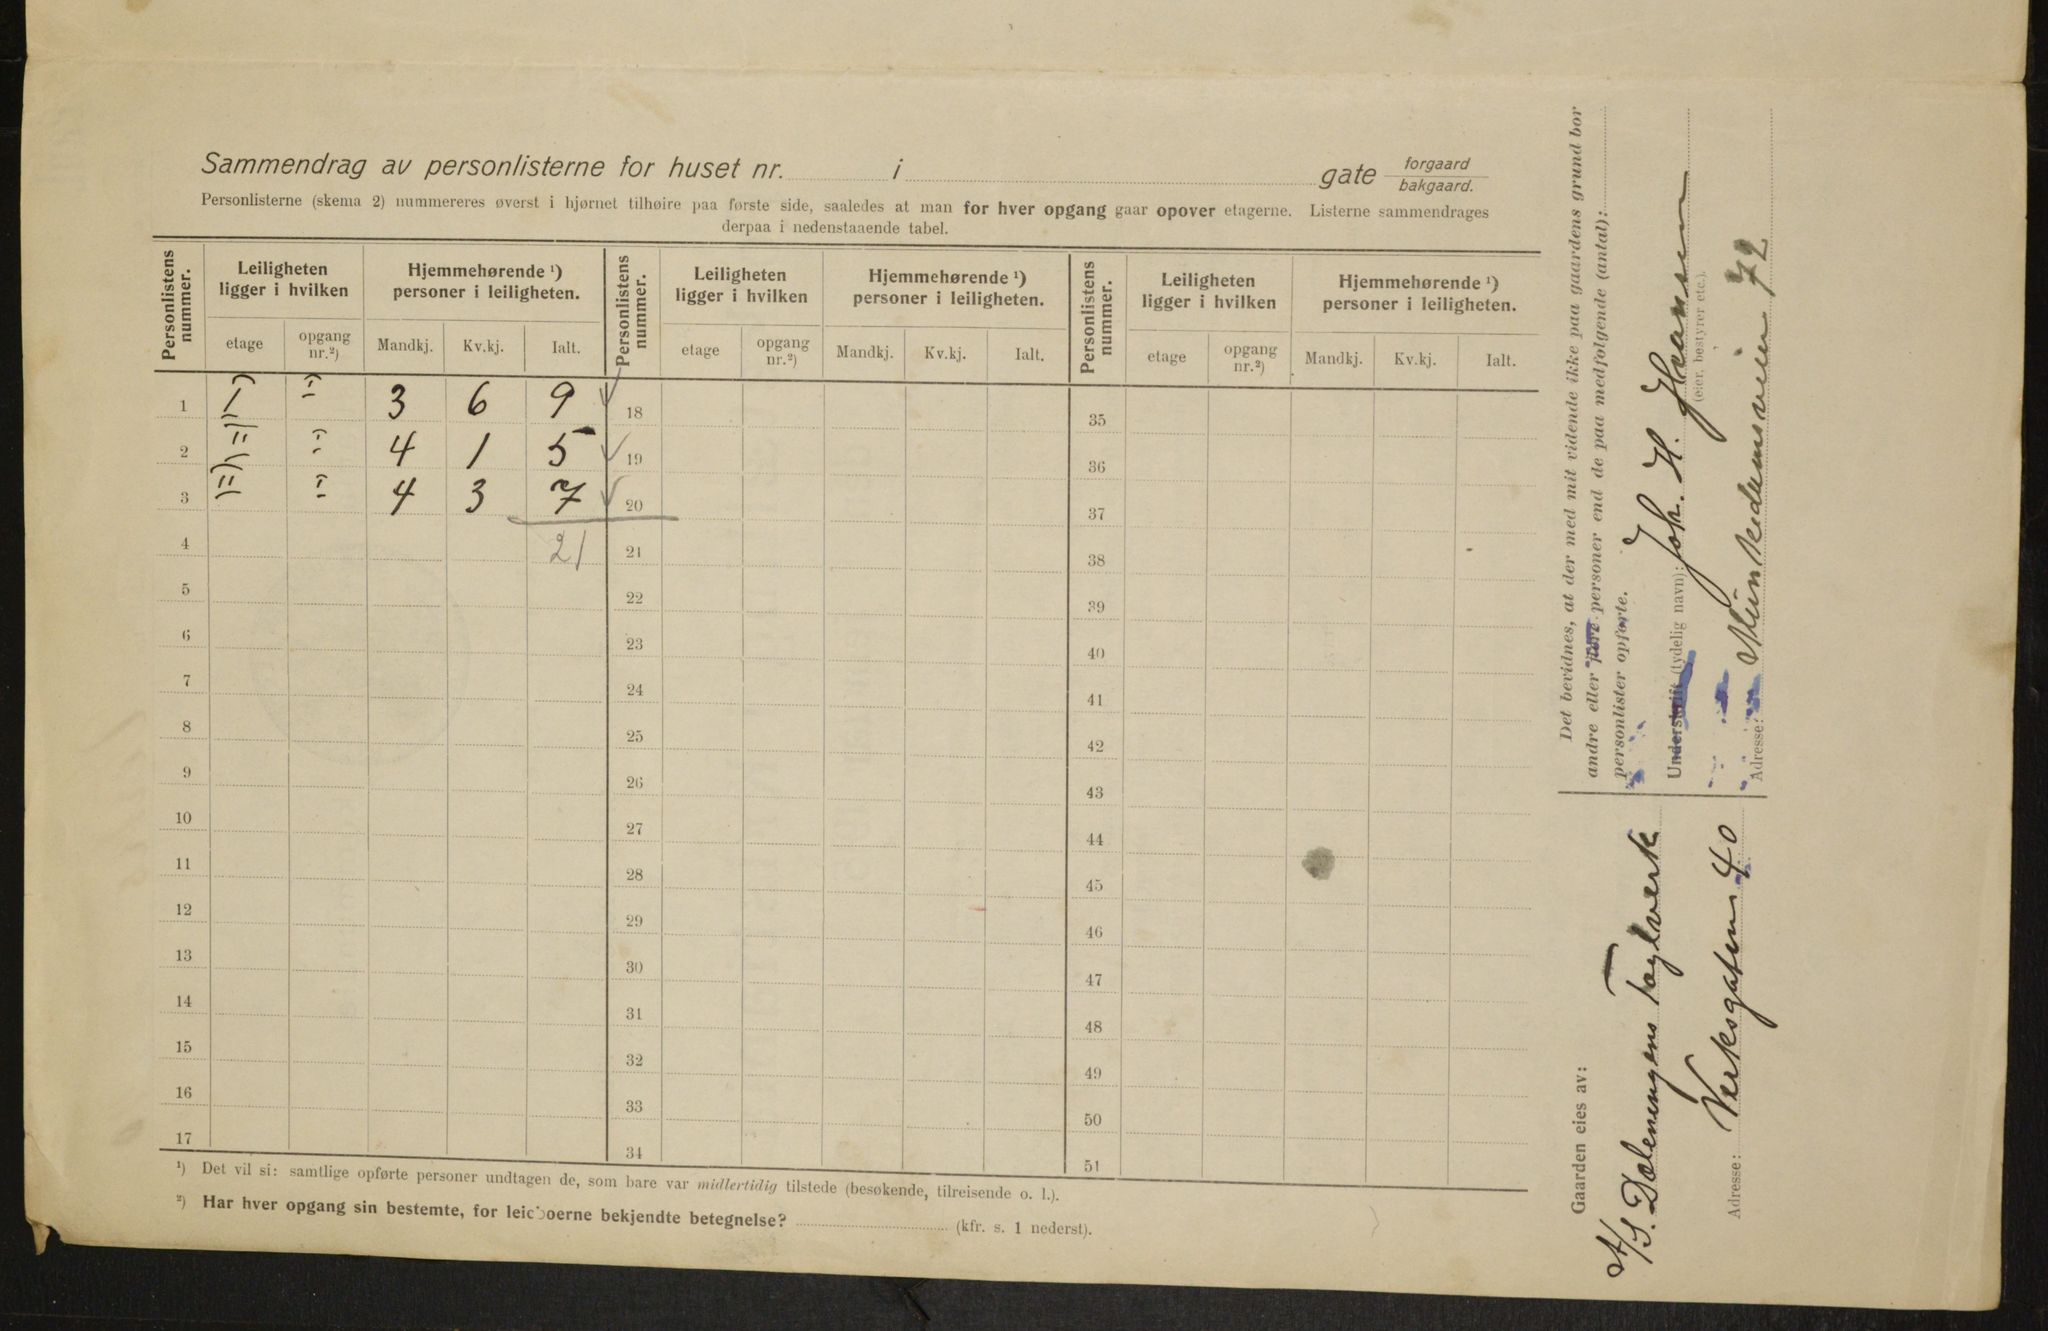 Sammendrag av personlisterne for huset nr. i gate forgaard bakgaard.
Personlisterne (skema 2) nummereres øverst i hjørnet tilhøire paa første side, saaledes at man for hver opgang gaar opover etagerne. Listerne sammendrages
derpaa i nedenstaaende tabel.
Personlistens nummer. Leiligheten ligger i hvilken Hjemmehørende ¹) personer i leiligheten. Personlistens nummer. Leiligheten ligger i hvilken Hjemmehørende ¹) personer i leiligheten. Personlistens nummer. Leiligheten ligger i hvilken Hjemmehørende ¹) personer i leiligheten.
etage opgang nr.²) Mandkj. Kv.kj. Ialt. etage opgang nr.²) Mandkj. Kv.kj. Ialt. etage opgang nr.²) Mandkj. Kv.kj. Ialt.
1 3 6 9 18 35
2 4 1 5 19 36
3 4 3 7 20 37
4 21 21 38
5 22 39
6 23 40
7 24 41
8 25 42
9 26 43
10 27 44
11 28 45
12 29 46
13 30 47
14 31 48
15 32 49
16 33 50
17 34 51
¹) Det vil si: samtlige opførte personer undtagen de, som bare var midlertidig tilstede (besøkende, tilreisende o. l.).
²) Har hver opgang sin bestemte, for leieboerne bekjendte betegnelse? (kfr. s. 1 nederst).
Det bevidnes, at der med mit vidende ikke paa gaardens grund bor
andre eller flere personer end de paa medfølgende (antal):
personlister opførte.
Underskrift (tydelig navn): Joh. H. Haansen
(eier, bestyrer etc.).
Adresse: Munkedamsveien 72
Gaarden eies av:
A/S. Dælenengens Taglverk
Adresse: Verksgaten 40